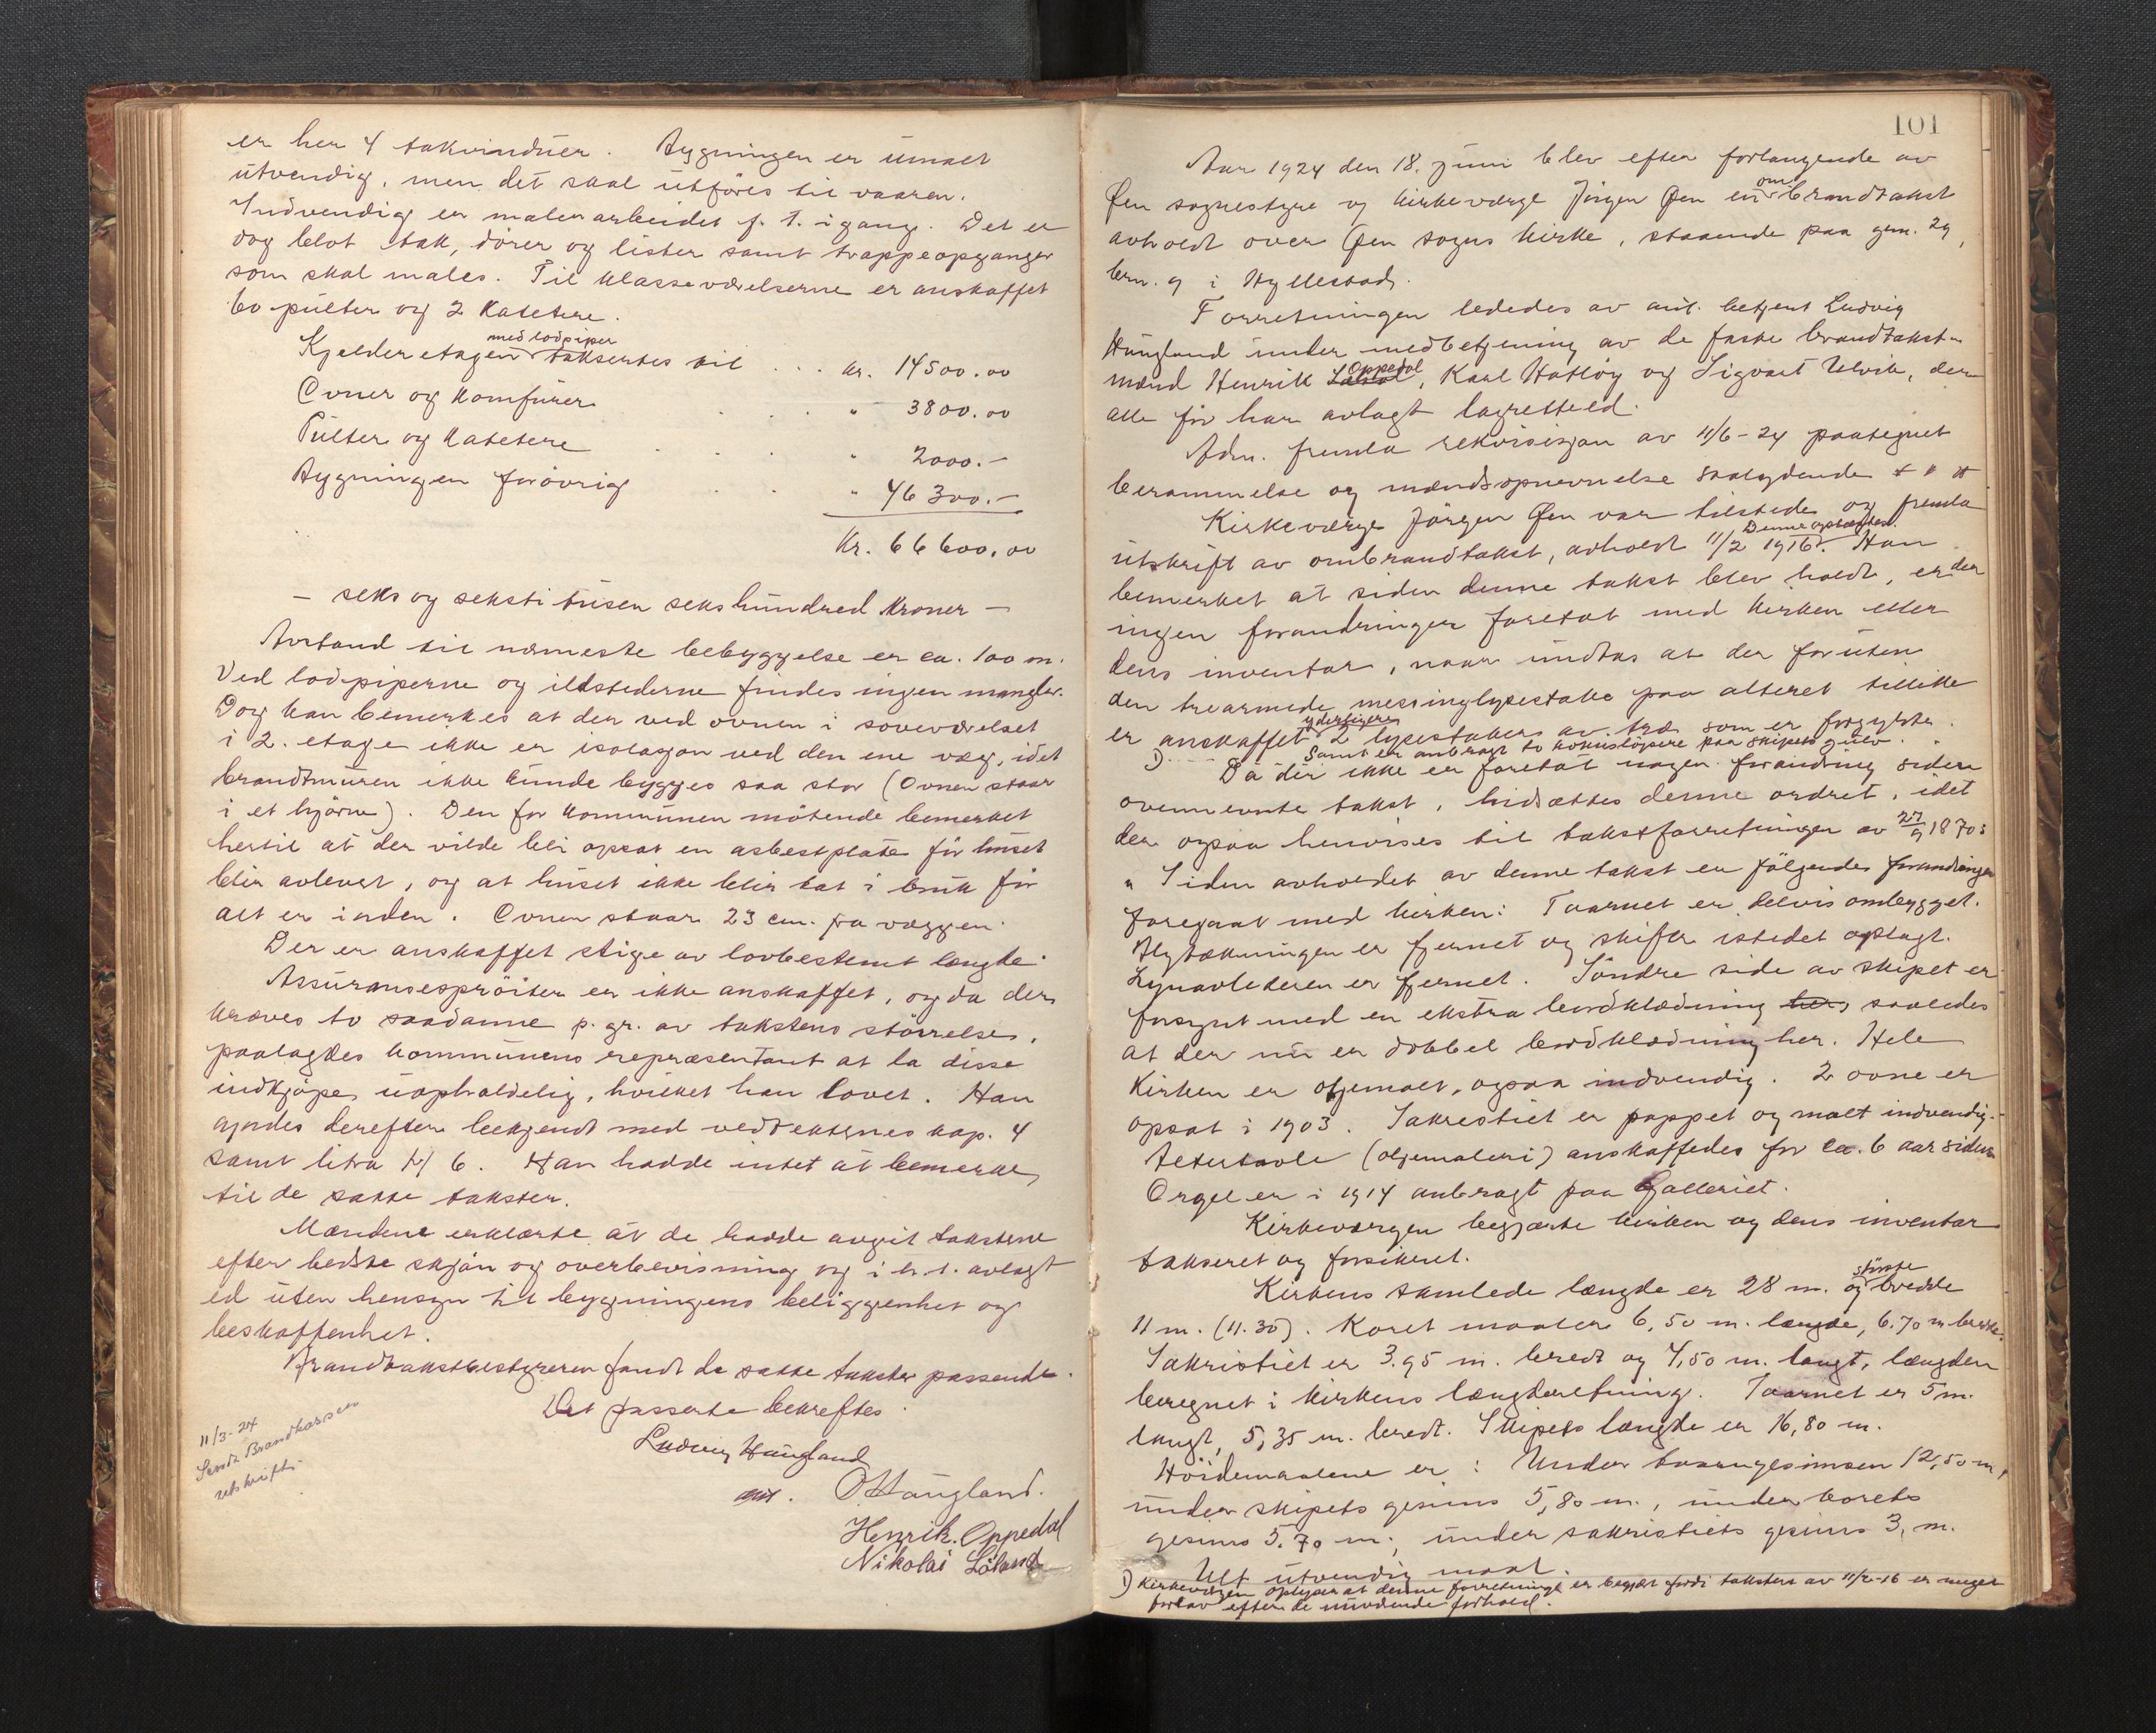 er her 4 takvinduer. Bygningen er umalt
utvendig, men det skal utføres til vaaren.
Indvendig er malerarbeidet f. t. igang. Det er
dog blot tak, dører og lister samt trappeopganger
som skal males. Til klasseværelserne er anskaffet
60 pulter og 2 Katetere.
med lodpiper
Kjelderetagen taksertes til . . . kr. 14500.00
Ovner og komfürer . . . " 3800.00
Pulter og Katetere . . . " 2000.-
Bygningen forøvrig . . " 46300.-
Kr. 66600.00
- seks og seksti tusen sekshundred kroner -
Avstand til nærmeste bebyggelse er ca. 100 m.
Ved lodpiperne og ildstederne findes ingen mangler.
Dog kan bemerkes at der ved ovnen i soveværelset
i 2. etage ikke er isolasjon ved den ene væg, idet
brandmuren ikke kunde bygges saa stor (Ovnen staar
i et hjørne). Den for kommunen møtende bemerket
hertil at der vilde bli opsat en asbestplate før huset
blir avlevert, og at huset ikke blir tat i bruk før
alt er iorden. Ovnen staar 23 cm. fra væggen.
Der er anskaffet stige av lovbestemt længde.
Assuransesprøiter er ikke anskaffet, og da der
kræves to saadanne p. gr. av takstens størrelse,
paalagdes kommunens repræsentant at la disse
indkjøpe uopholdelig, hvilket han lovet. Han
gjordes derefter bekjendt med vedtekternes kap. 4
samt litra H 6. Han hadde intet at bemerke
til de satte takster.
Mændene erklærte at de hadde avgit taksterne
efter bedste skjøn og overbevisning og i h. t. avlagt
ed uten hensyn til bygningens beliggenhet og
beskaffenhet.
Brandtakstbestyreren fandt de satte takster passende.
Det passerte bekreftes.
Ludvig Haugland
ant. O Haugland.
Henrik. Oppedal
Nikolai Løland
11/3-24
Sendt Brandkassen
utskrift.
101
Aar 1924 den 18. juni blev efter forlangende av
om
Øen sognestyre og kirkeværge Jørgen Øen en brandtakst
avholdt over Øen sogns kirke, staaende paa gnr. 29,
brn. 9 i Hyllestad.
Forretningen lededes av aut. betjent Ludvig
Haugland under medbetjening av de faste brandtakst-
Oppedal
mænd Henrik , Karl Hatløy og Sigvart Ulvik, der
alle før har avlagt lagretteed.
Adm. fremla rekvisisjon av 11/6-24 paategnet
berammelse og mændsopnevnelse saalydende # " #
Kirkeværge Jørgen Øen var tilstede og fremla
Denne oplæstes.
utskrift av ombrandtakst, avholdt 11/2 1916. Han
bemerket at siden denne takst blev holdt, er der
ingen forandringer foretat med kirken eller
dens inventar, naar undtas at der foruten
den trearmede messinglysestake paa alteret tillike
yderligere
er anskaffet 2 lysestaker av træ som er forgylte.
samt er anbragt to kokusløpere paa skipets gulv.
1) Da der ikke er foretat nogen forandring siden
ovennevnte takst, hidsættes denne ordret, idet
der ogsaa henvises til takstforretningen av 27/9 1870:
"Siden avholdet av denne takst er følgende forandringer
foregaat med kirken: Taarnet er delvis ombygget.
Blytækningen er fjernet og skifer istedet oplagt.
Lynavlederen er fjernet. Søndre side av skipet er
forsynt med en ekstra bordklædning her, saaledes
at der nu er dobbel bordklædning her. Hele
Kirken er oljemalt, ogsaa indvendig. 2 ovne er
opsat i 1903. Sakrestiet er pappet og malt indvendig.
Altertavle (oljemaleri) anskaffedes for ca. 6 aar siden
Orgel er i 1914 anbragt paa Galleriet.
Kirkeværgen begjærte kirken og dens inventar
takseret og forsikret.
største
Kirkens samlede længde er 28 m. og bredde
11 m. (11.30). Koret maaler 6,50 m. længde, 6.70 m bredde.
Sakristiet er 3.95 m. bredt og 4,50 m. langt, længden
beregnet i kirkens længderetning. Taarnet er 5 m.
langt, 5,35 m. bredt. Skipets længde er 16,80 m.
Høidemaalene er: Under taarngesimsen 12,50 m,
under skipets gesims 5,80 m., under korets
gesims 5.70 m; under sakristiets gesims 3, m.
Alt utvendig maal.
1) Kirkeværgen oplyser at denne forretning er begjært fordi taksten av 11/2-16 er meget
for lav efter de nuværende forhold.